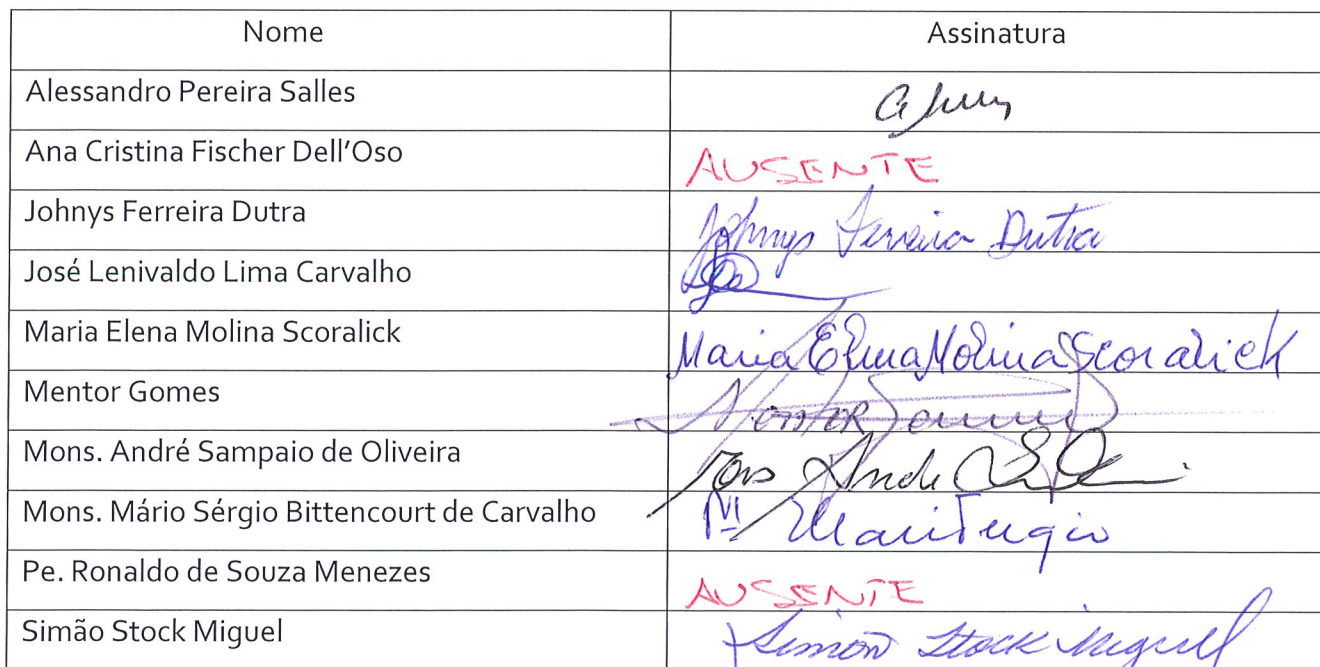 Nome Assinatura
Alessandro Pereira Salles
Ana Cristina Fischer Dell'Oso AUSENTE
Johnys Ferreira Dutra Johnys Ferreira Dutra
José Lenivaldo Lima Carvalho
Maria Elena Molina Scoralick Maria Elena Molina Scoralick
Mentor Gomes Mentor Gomes
Mons. André Sampaio de Oliveira Mons André
Mons. Mário Sérgio Bittencourt de Carvalho Mario Sergio
Pe. Ronaldo de Souza Menezes AUSENTE
Simão Stock Miguel Simon Stock Miguel